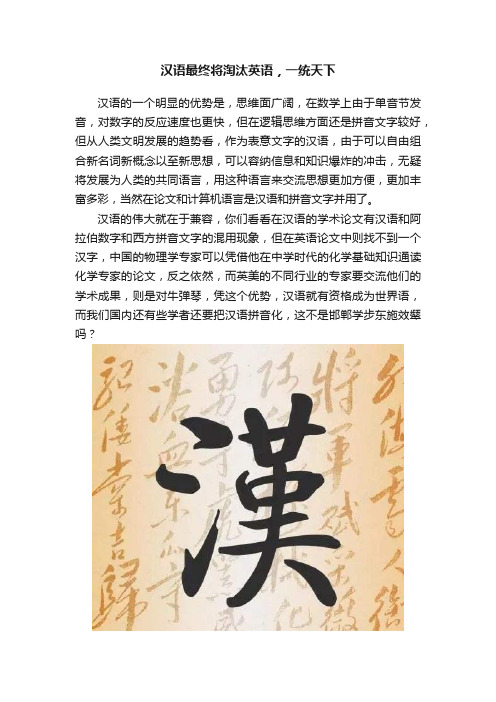 汉语最终将淘汰英语，一统天下
汉语的一个明显的优势是，思维面广阔，在数学上由于单音节发
音，对数字的反应速度也更快，但在逻辑思维方面还是拼音文字较好，
但从人类文明发展的趋势看，作为表意文字的汉语，由于可以自由组
合新名词新概念以至新思想，可以容纳信息和知识爆炸的冲击，无疑
将发展为人类的共同语言，用这种语言来交流思想更加方便，更加丰
富多彩，当然在论文和计算机语言是汉语和拼音文字并用了。
汉语的伟大就在于兼容，你们看看在汉语的学术论文有汉语和阿
拉伯数字和西方拼音文字的混用现象，但在英语论文中则找不到一个
汉字，中国的物理学专家可以凭借他在中学时代的化学基础知识通读
化学专家的论文，反之依然，而英美的不同行业的专家要交流他们的
学术成果，则是对牛弹琴，凭这个优势，汉语就有资格成为世界语，
而我们国内还有些学者还要把汉语拼音化，这不是邯郸学步东施效颦
吗？
漢